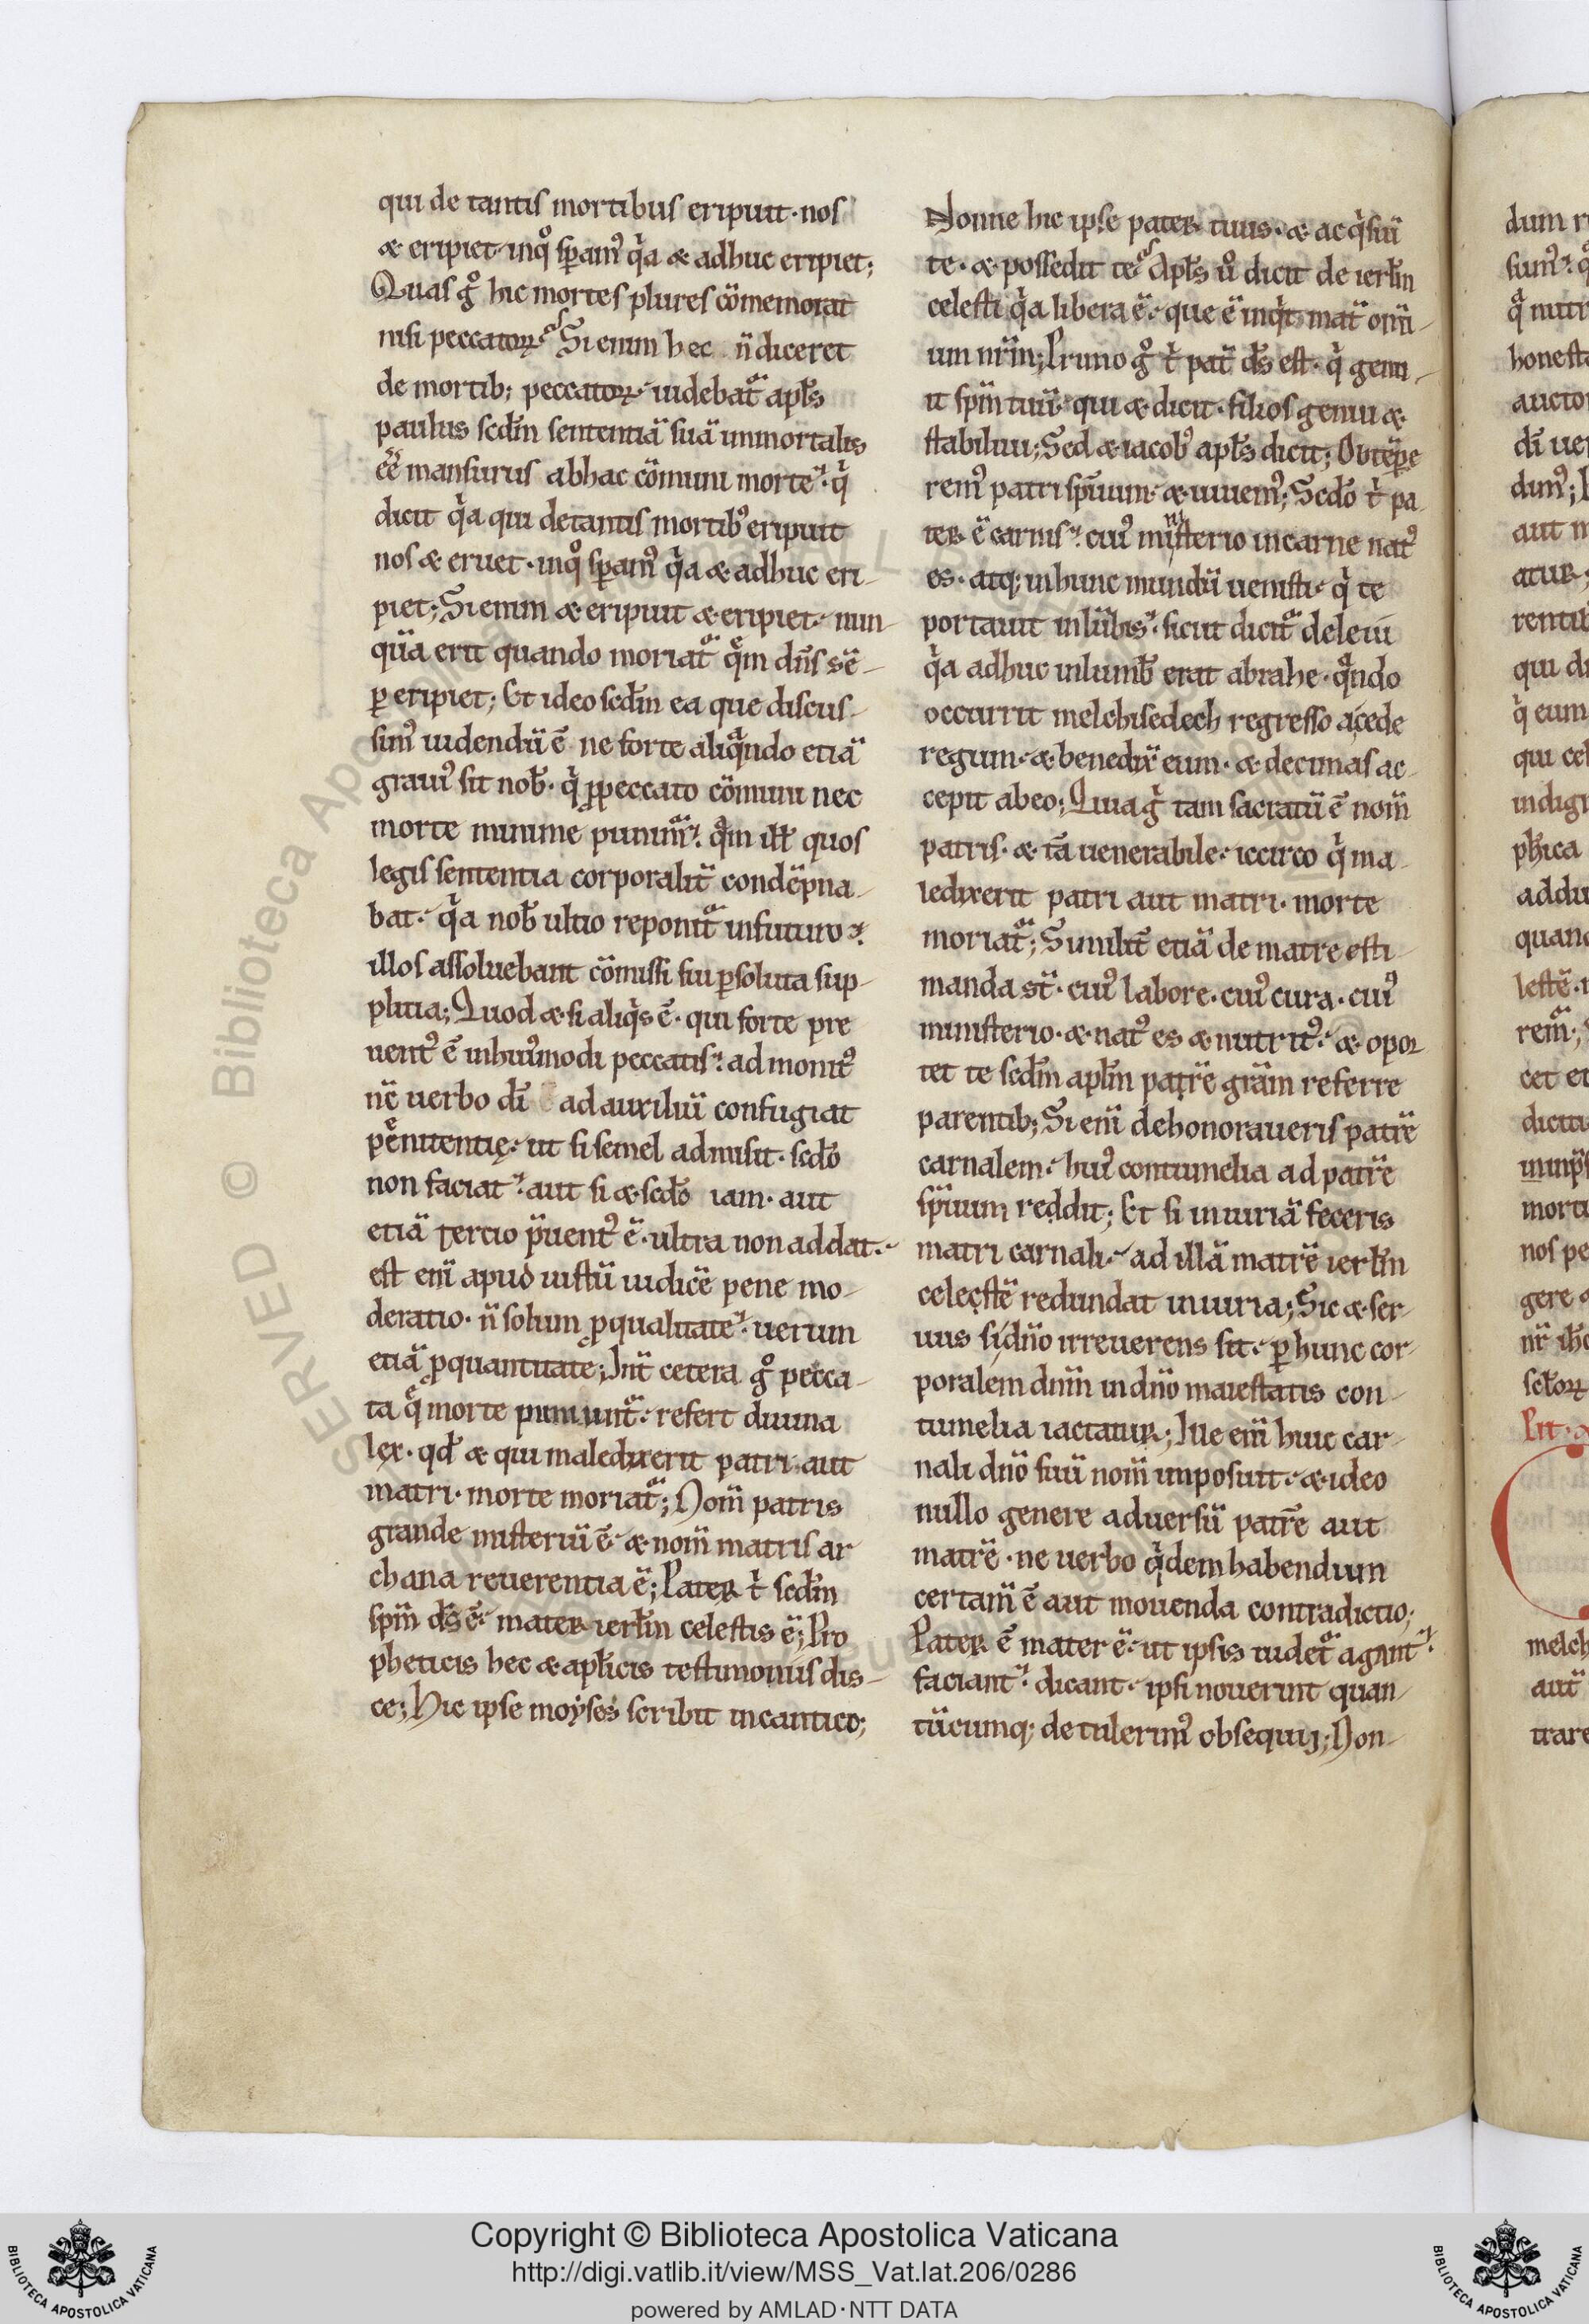 qui de tantis mortibus eripuit · nos
& eripiet · inq̊ speram᾽ q̇a & adhuc eripiet;
Quas g̊ hic mortes plures cōmemorat
nisi peccatoꝝ? Si enim hec n̄ diceret
de mortib; peccatoꝝ · uidebat᷑ apl̄s
paulus scd̄m sententiā suā inmortalis
ēē mansurus abhac cōmuni morte · q̇
dicit q̇a qui detantis mortib᾽ eripuit
nos & eruet · inq̊ speram᾽ q̇a & adhuc eri-
piet; Si enim & eripuit & eripiet · nun-
quā erit quando moriat᷑ qm̄ dn̄s sē-
ꝑ eripiet; Et ideo scd̄m ea que discus-
sim᾽ uidendū ē ne forte aliqͣndo etiā
graui᾽ sit nob̄ · q̇ ꝓpeccato cōmuni nec
morte minime punim᷑ · qͣm ill̄ quos
legis sententia corporalit̄ condēpna-
bat · q̇a nob̄ ultio reponit᷑ infuturo ·
illos assoluebant cōmissi sui ꝑsoluta sup-
plitia; Quod & si aliq̇s ē · qui forte pre
uent᾽ ē inhui᾽modi peccatis · ad monit᾽
nē uerbo dī ad auxiliū confugiat
penitentię · ut si semel admisit · scdo
non faciat · aut si & scdo iam · aut
etiā tercio p̄uent᾽ ē · ultra non addat ·
est enī apud iustū iudicē pene mo-
deratio · n̄ solum ꝓqualitate · uerum
etiā ꝓquantitate; Int̄ cetera g̊ pecca-
ta q̄ morte puniunt᷑ · refert diuina
lex · qd̄ & qui maledixerit patri · aut
matri · morte moriat᷑; Nom̄ patris
grande misteriū ē · & nom̄ matris ar
chana reuerentia ē; Pater t̄ scd̄m
sp̄m d̄s ē · mater ierl̄m celestis ē; Pro
pheticis hec & apl̄icis testimoniis dis-
ce; Hic ipse moẏses scribit incantico;
Nonne hic ipse pater tuus · & acq̇siuī
te · & possedit te? Apl̄s ů dicit de ierl̄m
celesti q̇a libera ē · que ē inq̇t mat̄ om̄i-
um nr̄m; Primo g̊ t̄ pat̄ d̄s est · q̇ genu-
it sp̄m tuū · qui & dicit · filios genui &
stabiliui; Sed & iacob᾽ apl̄s dicit; Obtēpe
rem᾽ patri sp̄iuum · & uiuem᾽; Scdo t̄ pa-
ter ē carnis · cui᾽ ministerio incarne nat᾽
es · atq; inhunc mundū uenisti · q̇ te
portauit inlūbis · sicut dicit᷑ deleui
q̇a adhuc inlumb̄ erat abrahe · qͣndo
occurrit melchisedech regresso acede
regum · & benedix̄ eum · & decimas ac-
cepit abeo; Quia g̊ tam sacratū ē nom̄
patris · & tā uenerabile · iccirco q̇ ma-
ledixerit patri aut matri · morte
moriat᷑; Similit̄ etiā de matre esti-
manda st̄ · cui᾽ labore · cui᾽ cura · cui᾽
ministerio · & nat᾽ es & nutrit᾽ · & opor
tet te scd̄m apl̄m patrē gr̄am referre
parentib; Si enī dehonoraueris patrē
carnalem · hui᾽ contumelia ad patrē
sp̄iuum reddit; Et si iniuriā feceris
matri carnali · ad illā matrē ierl̄m
celestē redundat iniuria; Sic & ser-
uus si dn̄o irreuerens sit · ꝑ hunc cor-
poralem dn̄m in dn̄o maiestatis con-
tumelia iactatur; Ille enī huic car-
nali dn̄o suū nom̄ imposuit · & ideo
nullo genere aduersū patrē aut
matrē · ne uerbo q̇dem habendum
certam̄ ē aut mouenda contradictio;
Pater ē mater ē · ut ipsis uidet᷑ agant ·
faciant · dicant · ipsi nouerint quan-
tūcumq; detulerim᾽ obsequij; Non-
Copyright © Biblioteca Apostolica Vaticana
http://digi.vatlib.it/view/MSS_Vat.lat.206/0286
powered by AMLAD·NTT DATA
BIBLIOTECA APOSTOLICA VATICANA
BIBLIOTECA APOSTOLICA VATICANA